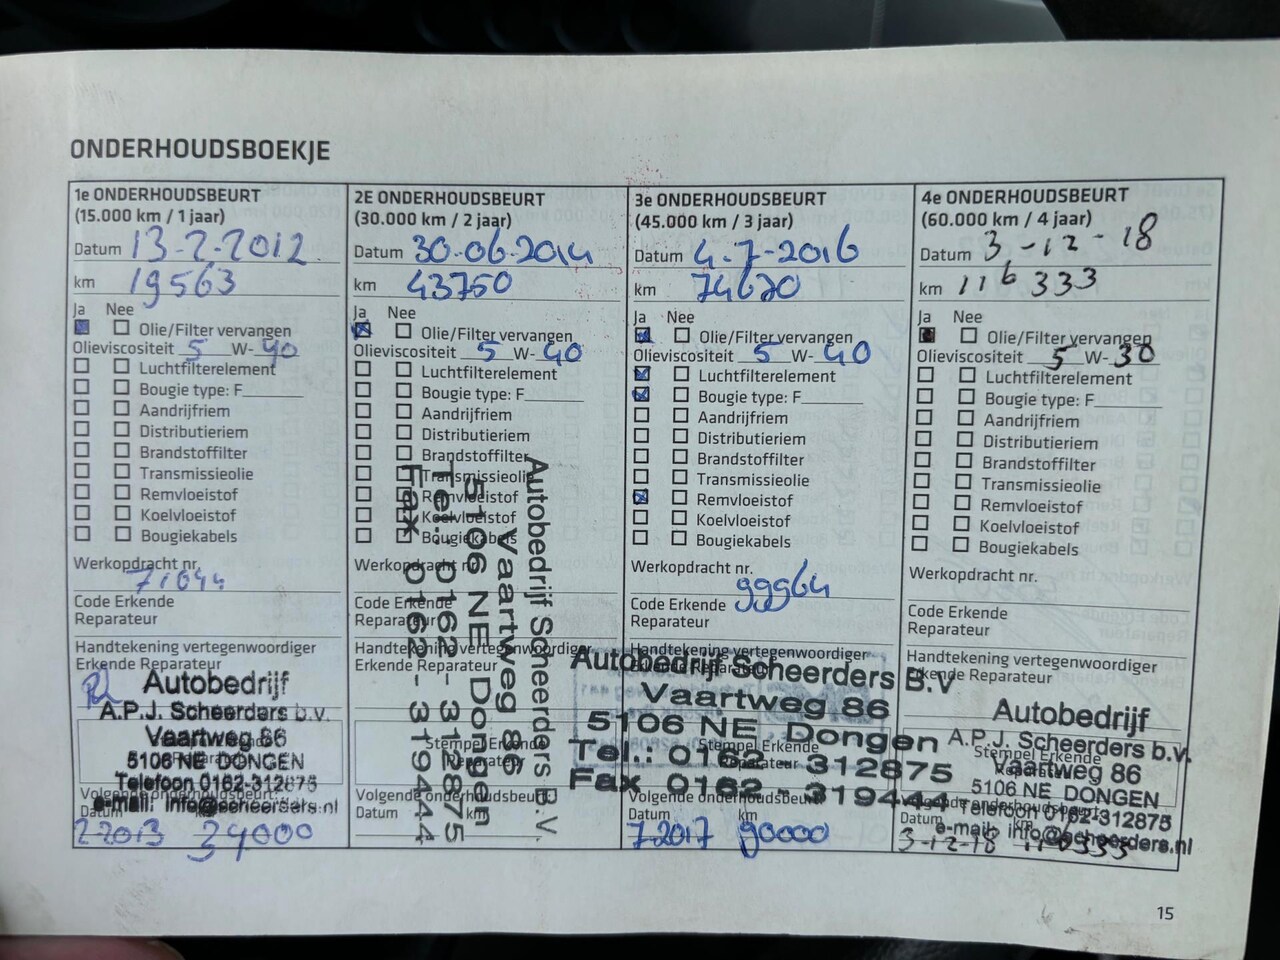 ONDERHOUDSBOEKJE
1e ONDERHOUDSBEURT
(15.000 km / 1 jaar)
Datum 13-2-2012
km 19563
Ja Nee
Olie/Filter vervangen
Olieviscositeit 5 W- 40
Luchtfilterelement
Bougie type: F
Aandrijfriem
Distributieriem
Brandstoffilter
Transmissieolie
Remvloeistof
Koelvloeistof
Bougiekabels
Werkopdracht nr.
71644
Code Erkende
Reparateur
Handtekening vertegenwoordiger
Erkende Reparateur
Autobedrijf
A.P.J. Scheerders b.v.
Vaartweg 86
5106 NE DONGEN
Telefoon 0162-312875
e-mail: info@scheerders.nl
Volgende onderhoudsbeurt:
Datum
2-2013 34000
2E ONDERHOUDSBEURT
(30.000 km / 2 jaar)
Datum 30-06-2014
km 43750
Ja Nee
Olie/Filter vervangen
Olieviscositeit 5 W- 40
Luchtfilterelement
Bougie type: F
Aandrijfriem
Distributieriem
Brandstoffilter
Transmissieolie
Remvloeistof
Koelvloeistof
Bougiekabels
Werkopdracht nr.
Code Erkende
Reparateur
Handtekening vertegenwoordiger
Erkende Reparateur
Stempel Erkende
Volgende onderhoudsbeurt
Datum
Autobedrijf Scheerders B.V.
Vaartweg 86
5106 NE Dongen
Tel.: 0162 - 312875
Fax 0162 - 319444
3e ONDERHOUDSBEURT
(45.000 km / 3 jaar)
Datum 4-7-2016
km 74620
Ja Nee
Olie/Filter vervangen
Olieviscositeit 5 W- 40
Luchtfilterelement
Bougie type: F
Aandrijfriem
Distributieriem
Brandstoffilter
Transmissieolie
Remvloeistof
Koelvloeistof
Bougiekabels
Werkopdracht nr.
99964
Code Erkende
Reparateur
Handtekening vertegenwoordiger
Erkende Reparateur
Autobedrijf Scheerders B.V
Vaartweg 86
5106 NE Dongen
Tel.: 0162 - 312875
Fax 0162 - 319444
Stempel Erkende
Reparateur
Volgende onderhoudsbeurt
Datum km
7-2017 90000
4e ONDERHOUDSBEURT
(60.000 km / 4 jaar)
Datum 3-12-18
km 116333
Ja Nee
Olie/Filter vervangen
Olieviscositeit 5 W- 30
Luchtfilterelement
Bougie type: F
Aandrijfriem
Distributieriem
Brandstoffilter
Transmissieolie
Remvloeistof
Koelvloeistof
Bougiekabels
Werkopdracht nr.
Code Erkende
Reparateur
Handtekening vertegenwoordiger
Erkende Reparateur
Autobedrijf
A.P.J. Scheerders b.v.
Stempel Erkende
Vaartweg 86
5106 NE DONGEN
Telefoon 0162-312875
e-mail: info@scheerders.nl
Datum km
3-12-18
15